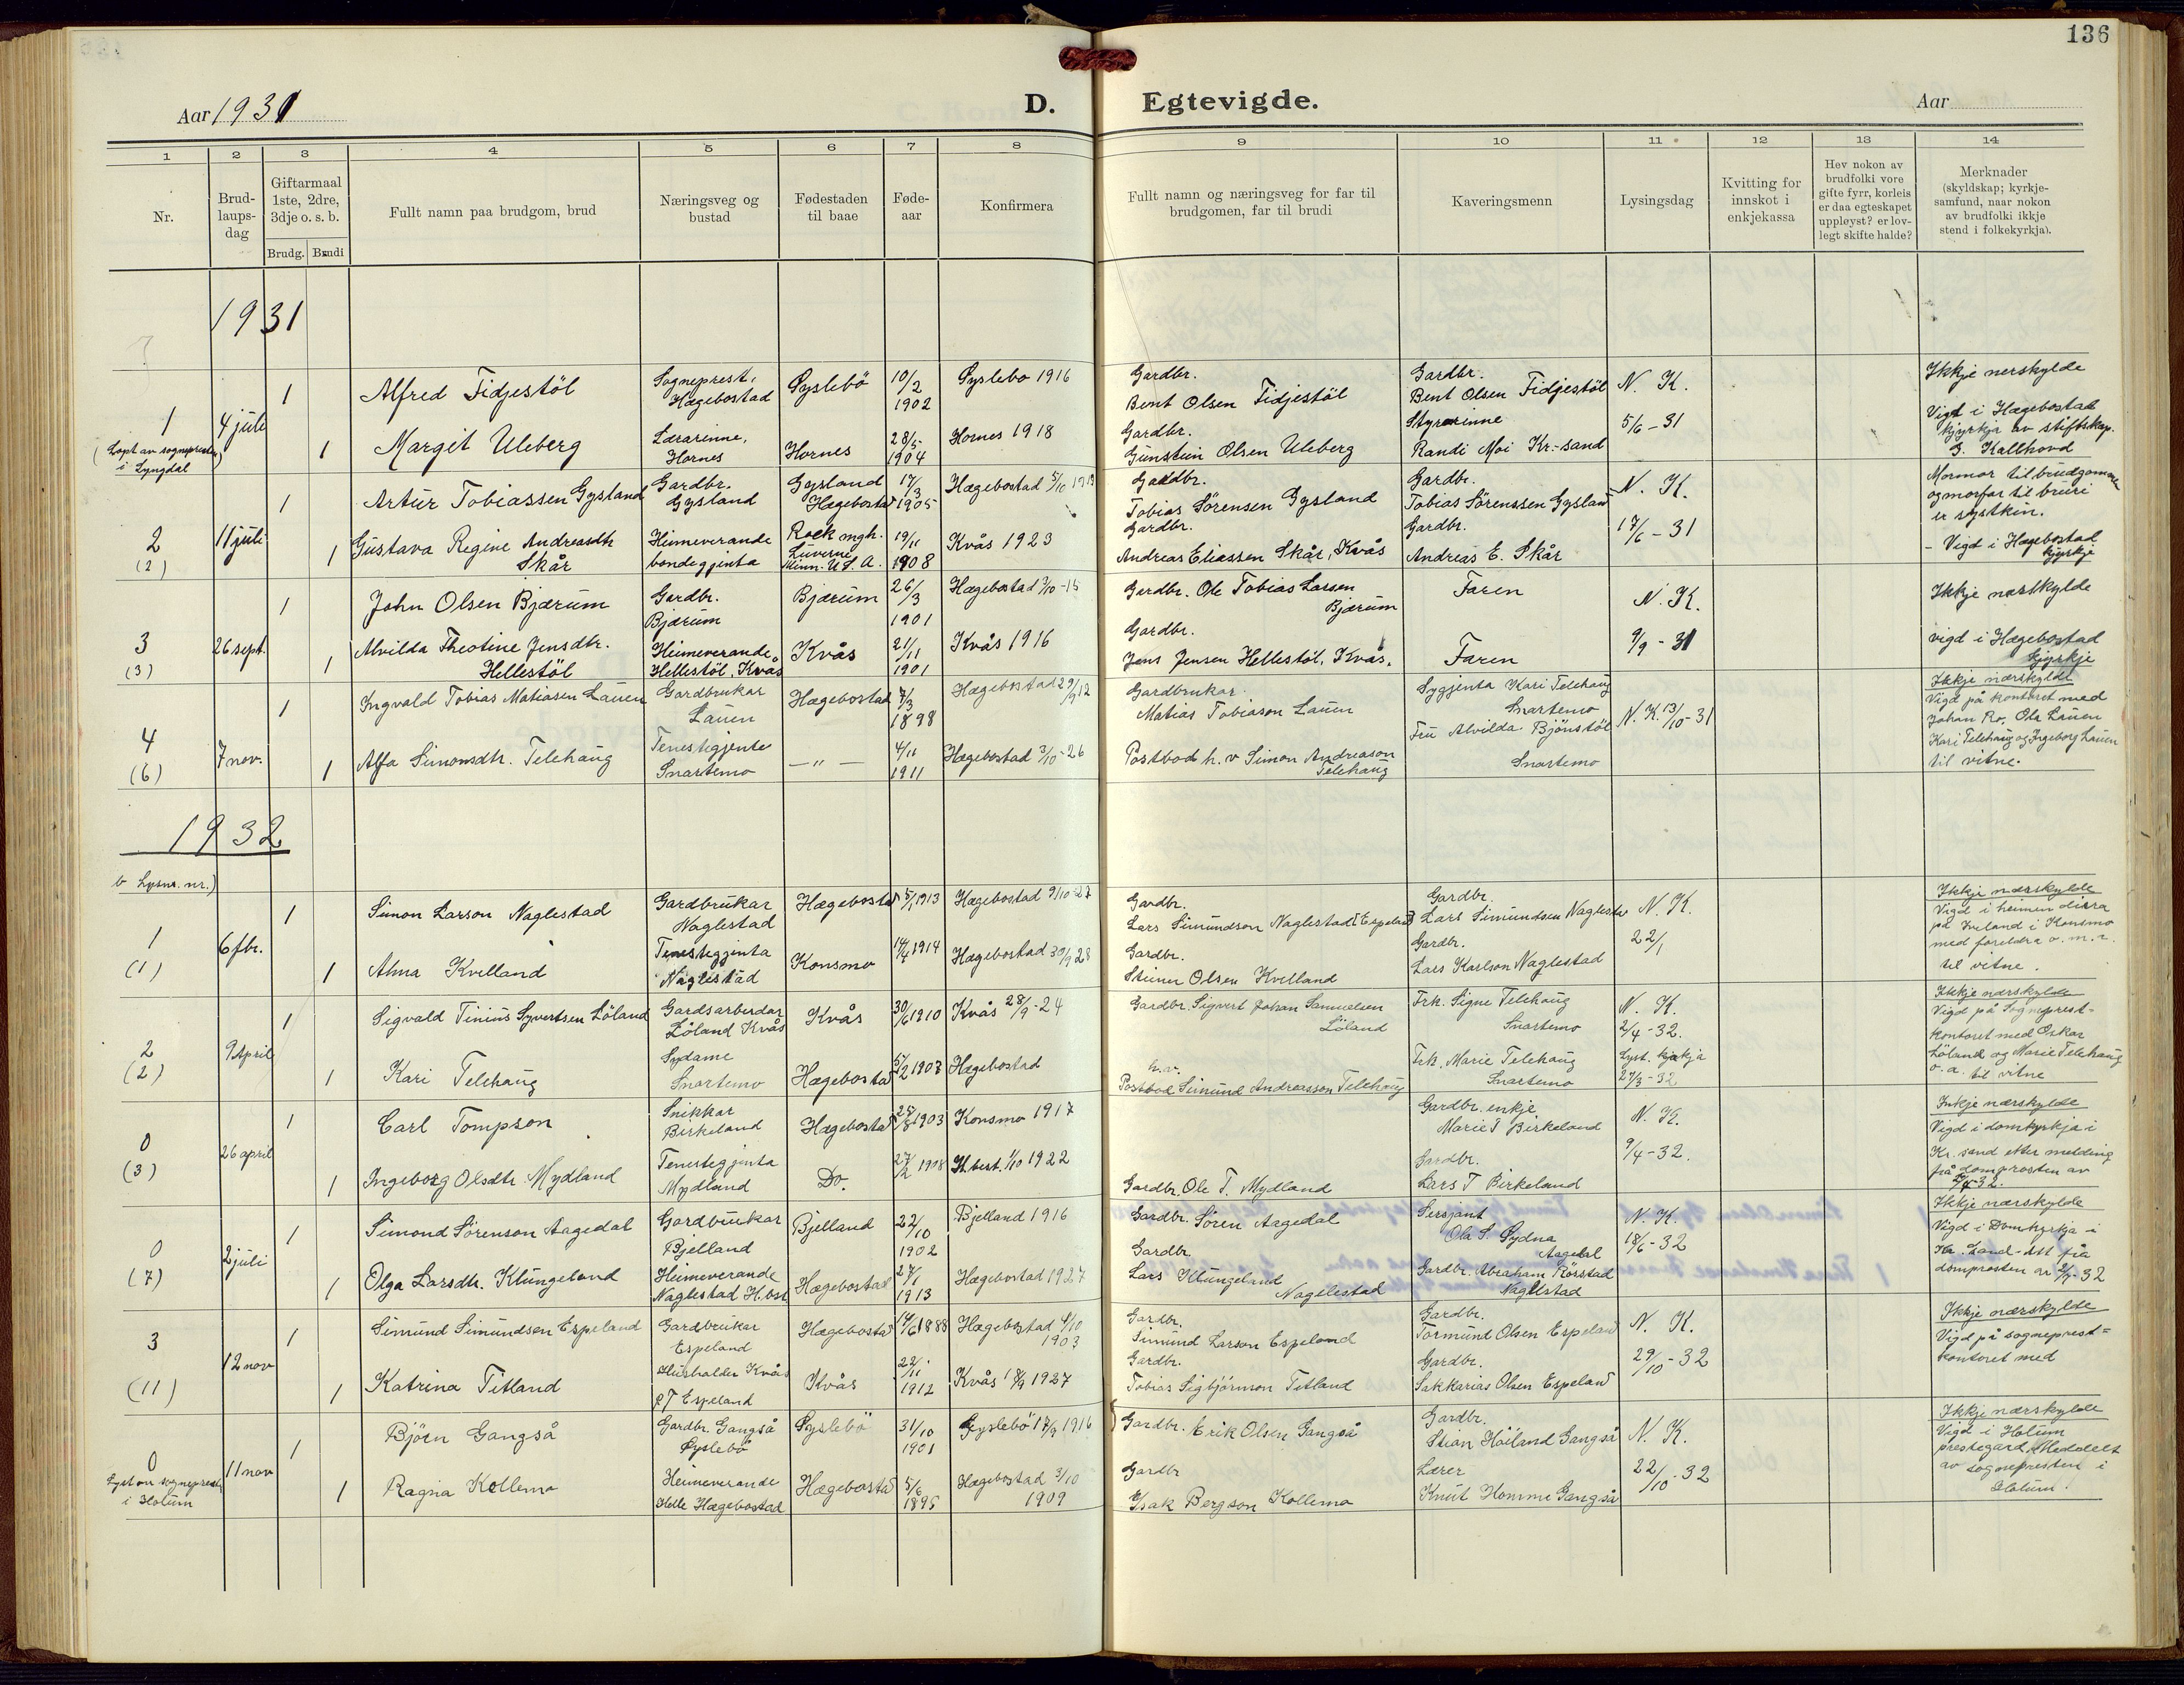 136
Aar 1931
D. Egtevigde.
Aar
1 2 3 4 5 6 7 8 9 10 11 12 13 14
Nr.
Brud-
laups-
dag
Giftarmaal
1ste, 2dre,
3dje o. s. b.
Brudg. Brudi
Fullt namn paa brudgom, brud
Næringsveg og
bustad
Fødestaden
til baae
Føde-
aar
Konfirmera
Fullt namn og næringsveg for far til
brudgomen, far til brudi
Kaveringsmenn
Lysingsdag
Kvitting for
innskot i
enkjekassa
Hev nokon av
brudfolki vore
gifte fyrr, korleis
er daa egteskapet
uppløyst? er lov-
legt skifte halde?
Merknader
(skyldskap; kyrkje-
samfund, naar nokon
av brudfolki ikkje
stend i folkekyrkja).
1931
1
i Lyngdal
4 juli
1 Alfred Fidjestöl
Sogneprest,
Hægebostad
Öyslebö
10/2
1902
Öyslebo 1916
Gardbr.
Bent Olsen Fidjestöl
Gardbr.
Bent Olsen Fidjestöl
N. K.
Ikkje nerskylde
1 Margit Uleberg
Lærarinne,
Hornes
Hornes
28/5
1904
Hornes 1918
Gardbr.
Gunstein Olsen Uleberg
Styrerinne
Randi Moi Kr.-sand
5/6 - 31
Vigd i Hægebostad
kjyrkja av stiftskap.
G. Kallhovd
2
(2)
11 juli
1 Artur Tobiassen Gysland
Gardbr.
Gysland
Gysland
Hægebostad
17/3
1905
Hægebostad 5/10 1919
Gardbr.
Tobias Sörensen Gysland
Gardbr.
Tobias Sörenssen Gysland
N. K.
Mormor til brudgomen
og morfar til bruri
er systkin.
1 Gustava Regine Andreasdtr
Skår
Heimeverande
bondegjenta
Rock mgh.
Luverne
Minn. U.S.A.
19/11
1908
Kvås 1923
Gardbr.
Andreas Eliassen Skår, Kvås
Gardbr.
Andreas E. Skår
17/6 - 31
- Vigd i Hægebostad
kjyrkje
3
(3)
26 sept.
1 John Olsen Bjærum
Gardbr.
Bjærum
Bjærum
26/3
1901
Hægebostad 3/10 -15
Gardbr. Ole Tobias Larsen
Bjærum
Faren
N. K.
Ikkje nærskylde
1 Alvilda Theotine Jensdtr.
Hellestöl
Heimeverande,
Hellestöl, Kvås
Kvås
21/11
1901
Kvås 1916
Gardbr.
Jens Jensen Hellestöl, Kvås.
Faren
9/9 - 31
vigd i Hægebostad
kjyrkje
4
(6)
7 nov.
1 Ingvald Tobias Matiasen Lauen
Gardbrukar
Lauen
Hægebostad
7/3
1898
Hægebostad 29/9 12
Gardbrukar
Matias Tobiason Lauen
Sygjenta Kari Telehaug
Snartemo
N. K. 13/10 - 31
Ikkje nærskylde
Vigd på kontoret med
Johan Ro, Ola Lauen
Kari Telehaug og Ingeborg Lauen
til vitne.
1 Alfa Simonsdtr. Telehaug
Tenestegjente
Snartemo
— " —
4/11
1911
Hægebostad 3/10 - 26
Postbod h. v Simon Andreason
Telehaug
Fru Alvilda Bjönstöl
Snartemo
1932
1
(1)
6 fbr.
1 Simon Larson Naglestad
Gardbrukar
Naglestad
Hægebostad
5/1 1913
Hægebostad 9/10 - 27
Gardbr.
Lars Simundson Naglestad [Espeland]
Gardbr.
Lars Simundsen Naglestad
N. K.
Ikkje nærskylde
Vigd i heimen dirra
på Iveland i Konsmo
med foreldra o. m. a.
til vitne.
1 Alma Kvelland
Tenestegjenta
Naglestad
Konsmo
14/4 1914
Hægebostad 30/9 28
Gardbr.
Steiner Olsen Kvelland
Gardbr.
Lars Karlson Naglestad
22/1
2
(2)
9 April
1 Sigvald Tinius Syvertsen Löland
Gardsarbeidar
Löland Kvås
Kvås
30/6 1910
Kvås 28/9 - 24
Gardbr. Sigvert Johan Samuelsen
Löland
Frk. Signe Telehaug
Snartemo
N. K.
2/4 - 32.
Ikkje nærskylde
Vigd på Sogneprest-
kontoret med Oskar
Löland og Marie Telehaug
o. a. til vitne
1 Kari Telehaug
Sydame
Snartemo
Hægebostad
5/2 1907
Hægebostad
h. v.
Postbod Simund Andreasson Telehaug
Frk. Marie Telehaug
Snartemo
Lyst. kjøkja
27/3 - 32
0
(3)
26 april
1 Carl Tompson
Snikkar
Birkeland
Hægebostad
27/8 1903
Konsmo 1917
Gardbr. enkje
Marie T Birkeland
N. K.
Inkje nærskylde
Vigd i domkyrkja i
Kr. sand etter melding
frå domprosten av
1 Ingeborg Olsdtr. Mydland
Tenestegjenta
Mydland
Do.
27/2 1908
H.bost. 1/10 1922
Gardbr. Ole T. Mydland
Gardbr.
Lars T Birkeland
9/4 - 32.
0
(7)
2 juli
1 Simond Sörenson Aagedal
Gardbrukar
Bjelland
Bjelland
22/10
1902
Bjelland 1916
Gardbr. Sören Aagedal
Sersjant
Ola S. Sydna
Aagedal
N. K.
18/6 - 32
Ikkje nærskylde
Vigd i Domkyrkja i
Kr. Sand - att frå
domprosten av 2/7 - 32
1 Olga Larsdtr. Klungeland
Heimeverande
Naglestad H.bst
Hægebostad
27/1
1913
Hægebostad 1927
Gardbr.
Lars Klungeland
Naglestad
Gardbr. Abraham Rörstad
Naglstad
3
(11)
12 nov
1 Simund Simundsen Espeland
Gardbrukar
Espeland
Hægebostad
14/6 1888
Hægebostad 4/10
1903
Gardbr.
Simund Larson Espeland
Gardbr.
Tormund Olsen Espeland
N. K.
Ikkje nærskylde
Vigd på sogneprest=
kontoret med
1 Katrina Titland
Husholder Kvås
p.T Espeland
Kvås
22/11
1912
Kvås 18/9 1927
Gardbr.
Tobias Sigbjörnson Titland
Gardbr.
Sakkarias Olsen Espeland
29/10 - 32
0
Lyst av sogneprest
i Holum
11 nov
1 Björn Gangså
Gardbr. Gangså
Öyslebö
Öyslebö
31/10
1901
Öyslebö 17/9 1916
Gardbr. Erik Olsen Gangså
Gardbr.
Stian Håiland Gangså
N. K.
Ikkje nærskylde
Vigd i Holum
prestegard. Meddelt
av sognepresten i
Holum.
1 Ragna Kollemo
Heimeverande
Helle Hægebostad
Hægebostad
5/6
1895
Hægebostad 3/10
1909
Gardbr
Isak Bergson Kollemo
Lærer
Knut Homme Gangså
22/10 - 32